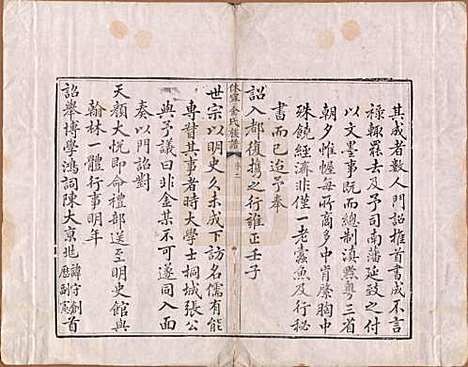 其成者數人門詔推首書成不言
祿輒罷去及予司南藩延致之付
以文墨事既而總制滇黔粵三省
朝夕惟幄每所商多中肯綮胸中
殊饒經濟非僅一老蠹魚及行秘
書而已迨予奉
詔入都復携之行雍正壬子
休寧金氏族譜
世宗以明史久未成下訪名儒有能
專對其事者時大學士桐城張公
與予議曰非金某不可遂同入面
奏以門詔對
天顏大悦即命禮部送至明史館與
翰林一體行事明年
詔舉博學鴻詞陳大京兆諱守創歷副憲首